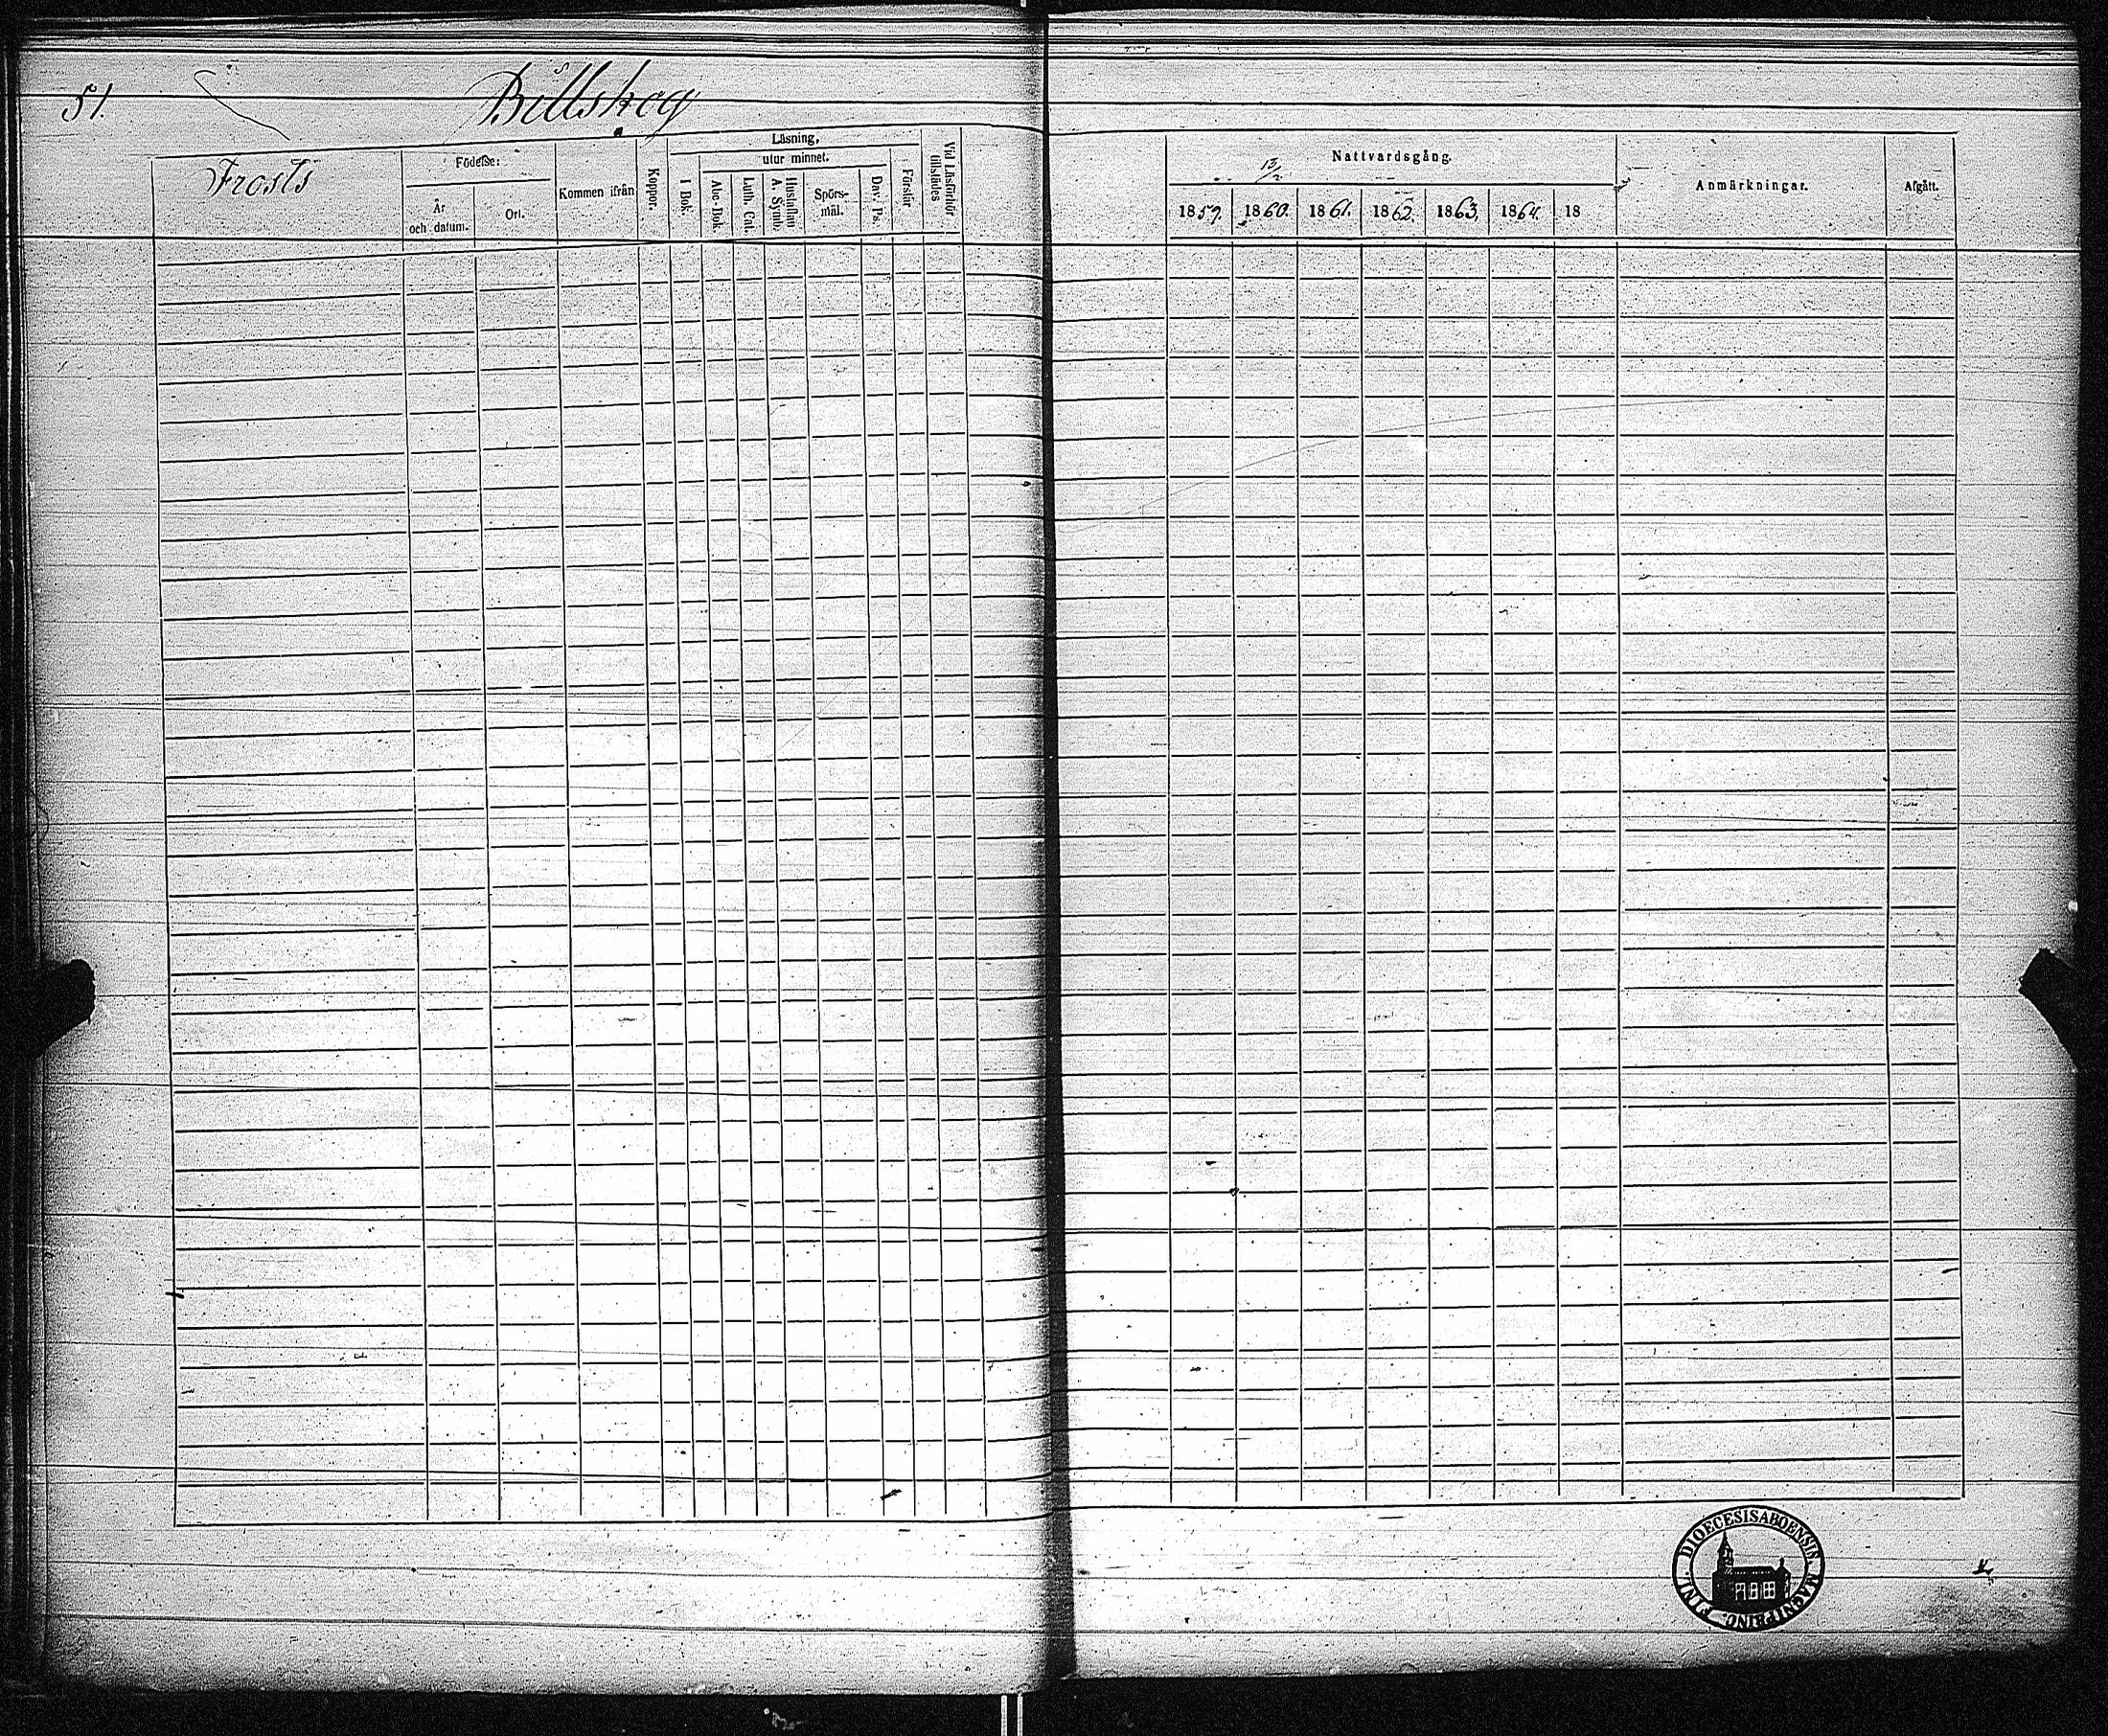 51.
Billskog
Frosts
Födelse:
År och datum.
Ort.
Kommen ifrån
Koppor.
Läsning,
I Bok.
utur minnet.
Abc-Bok.
Luth. Cat.
Hustaflan A. Symb.
Spörs-mål.
Dav. Ps.
Förstår
Vid Läsförhör tillstädes
Nattvardsgång.
13/2
1859.
1860.
1861.
1862.
1863.
1864.
18
Anmärkningar.
Afgått.
DIOECESIS ABOENSIN MAGNI PRINC. FINL.